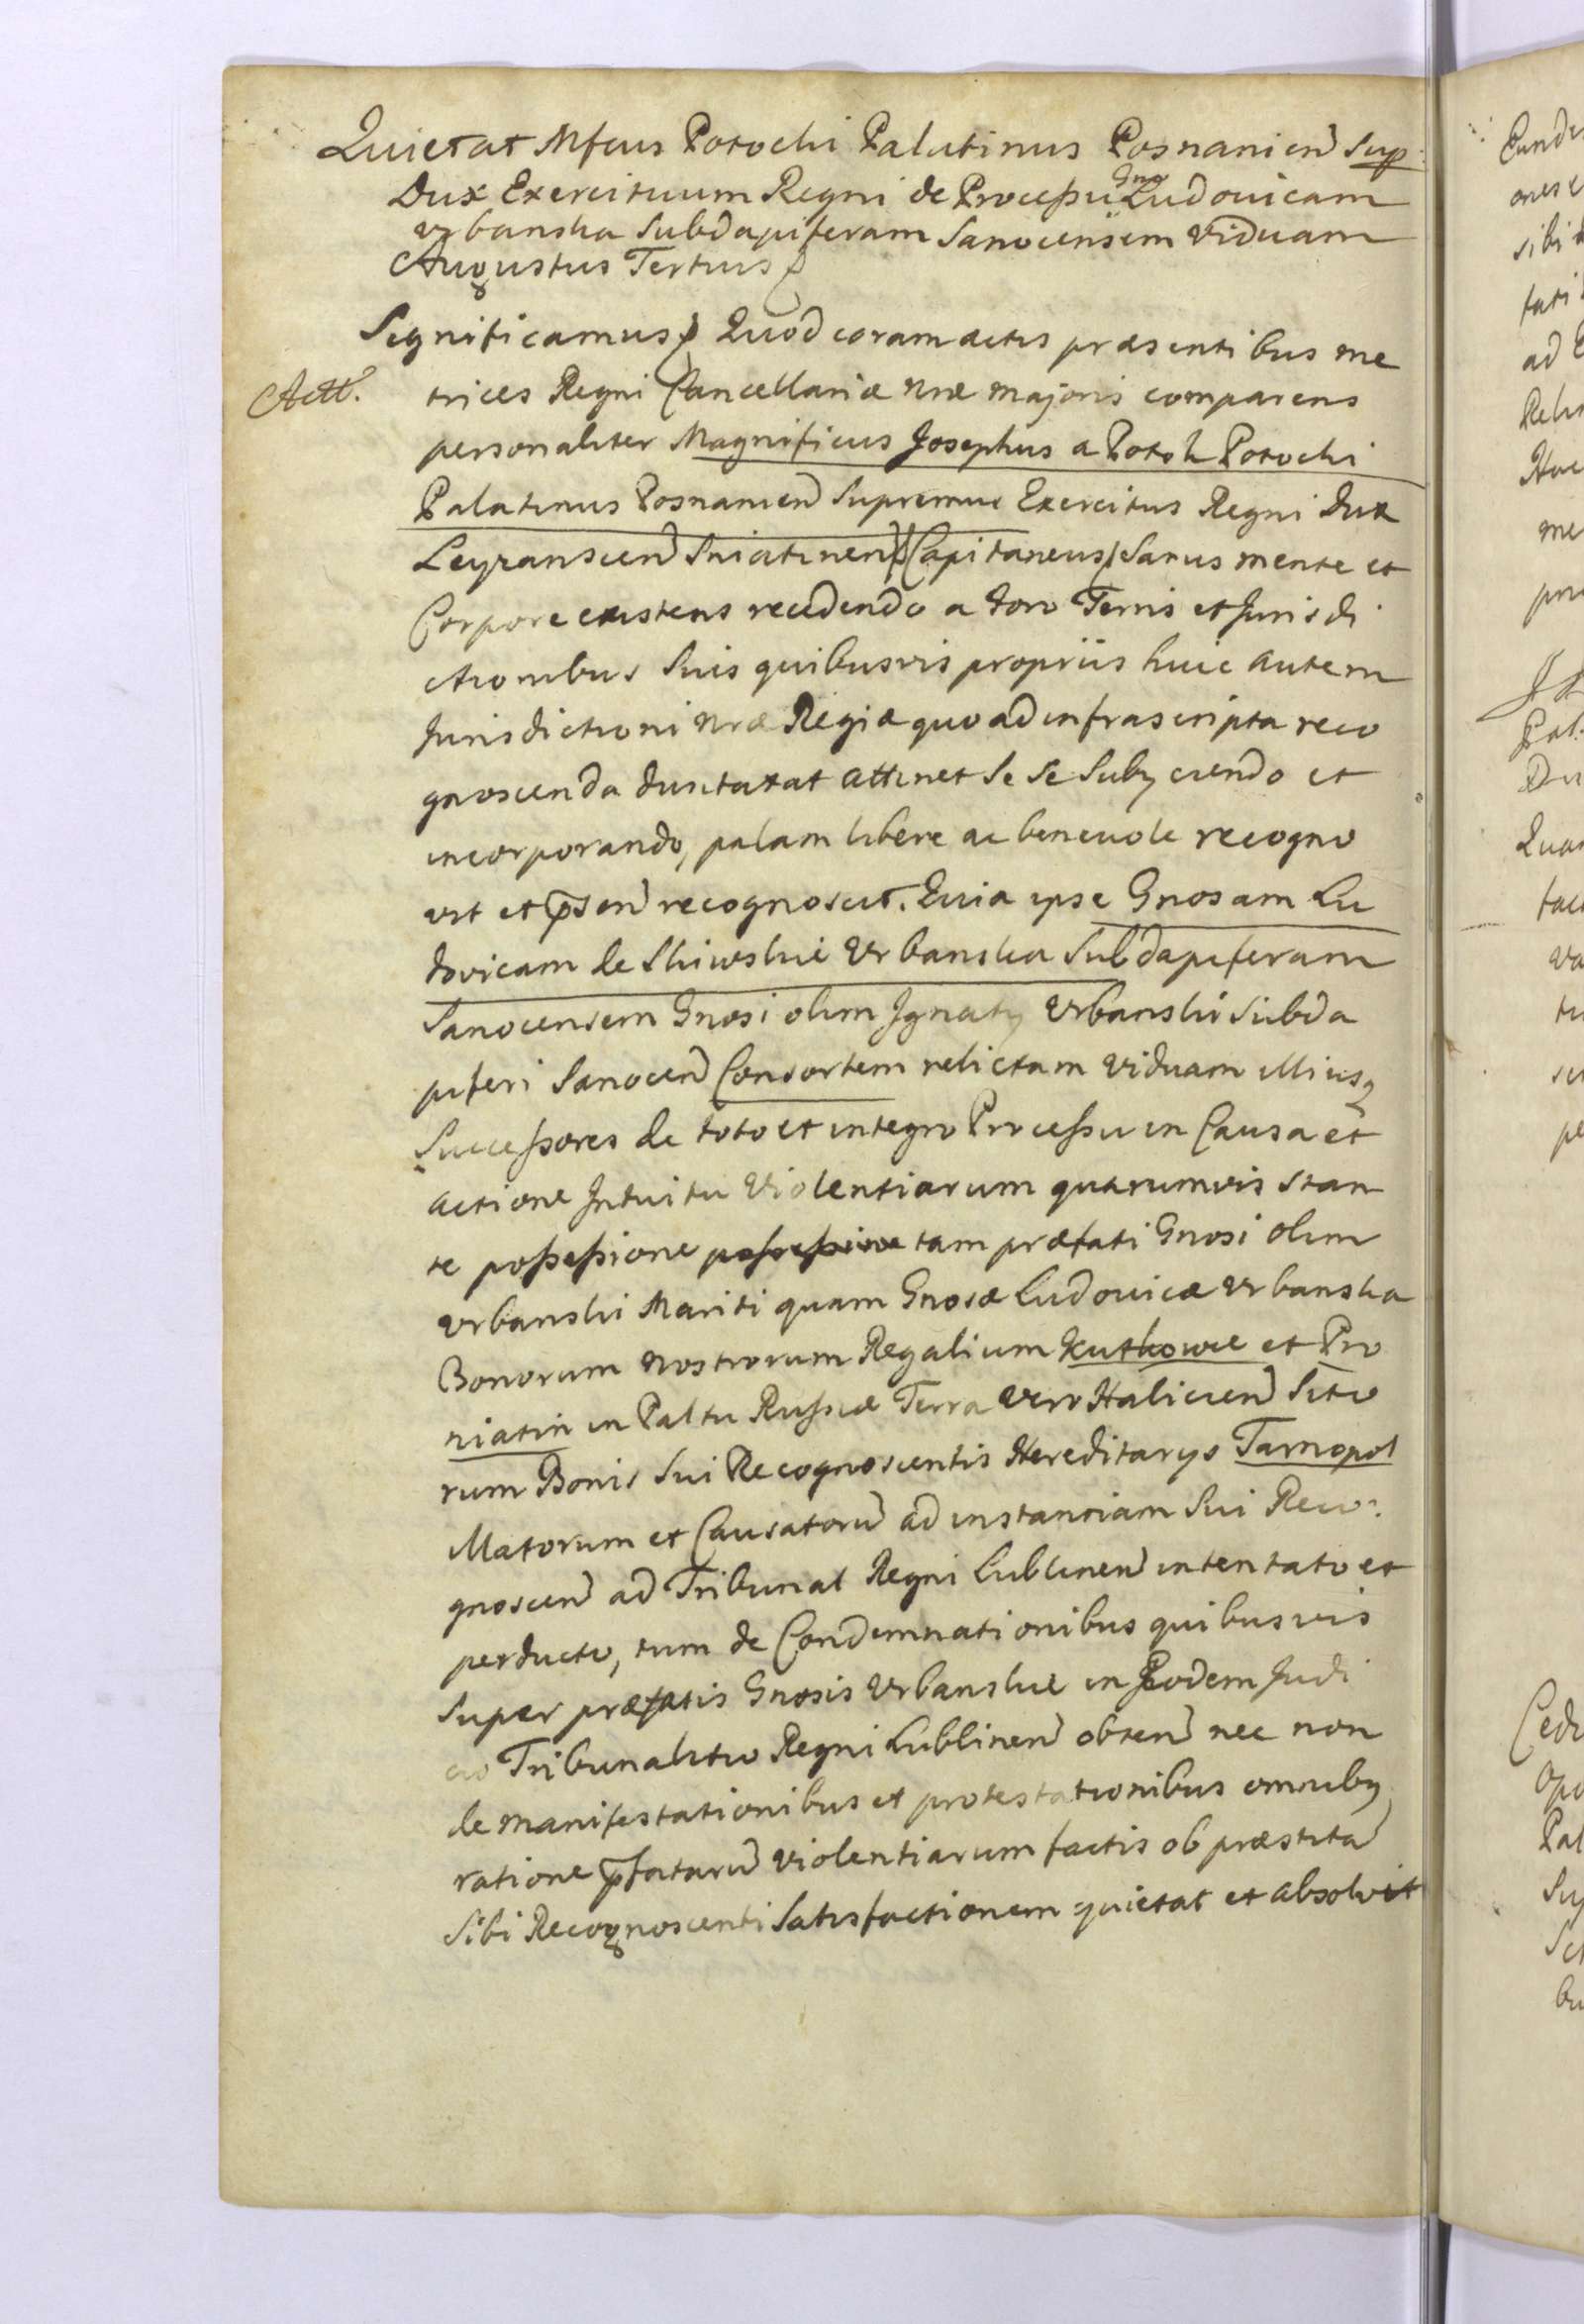 Quietat Mfcus Potocki Palatinus Posnanien Sup
Dux Exercituum Regni de Processu Gna Ludouicam
Urbanska Subdapiferam Sanocensem Viduam
Augustus Tertius
Significamus Quod coram actis præsentibus me
Actt.
trices Regni Cancellariæ nræ majoris comparens
personaliter Magnificus Josephus a Potok Potocki
Palatinus Posnanien Supremus Exercitus Regni Dux
Leyzanscien Sniatinen Capitaneus Sanus mente et
Corpore existens recedendo a foro Terris et Jurisdi
ctionibus Suis quibusvis propriis huic autem
Jurisdictioni nræ Regiæ quo ad infrascripta reco
gnoscenda duntaxat attinet Se Se Subijciendo et
incorporando, palam libere ac beneuole recogno
vit et pnsen recognoscit. Quia ipse Gnosam Lu
dovicam de Skiwskie Urbanska Subdapiferam
Sanocensem Gnosi olim Ignatij Urbanski Subda
piferi Sanocen Consortem relictam Viduam illiusq
Successores de toto et integro Processu in Causa et
actione Intuitu Violentiarum quarumvis stan
te possessione possessione tam præfati Gnosi olim
Urbanski Mariti quam Gnosæ Ludouicæ Urbanska
Bonorum nostrorum Regalium Kutkowce et Pro
niatin in Paltu Russiæ Terra vero Halicien Sito
rum Bonis Sui Recognoscentis Hereditarys Tarnopol
illatorum et Causatoru ad instantiam Sui Reco:
gnoscen ad Tribunal Regni Lublinen intentato et
perducto, tum de Condemnationibus quibusvis
Super præfatis Gnosis Urbanskie in Eodem Judi
cio Tribunalitio Regni Lublinen obten nec non
de manifestationibus et protestationibus omnibq
ratione pfataru violentiarum factis ob præstita
Sibi Recognoscenti Satisfactionem quietat et absolvit